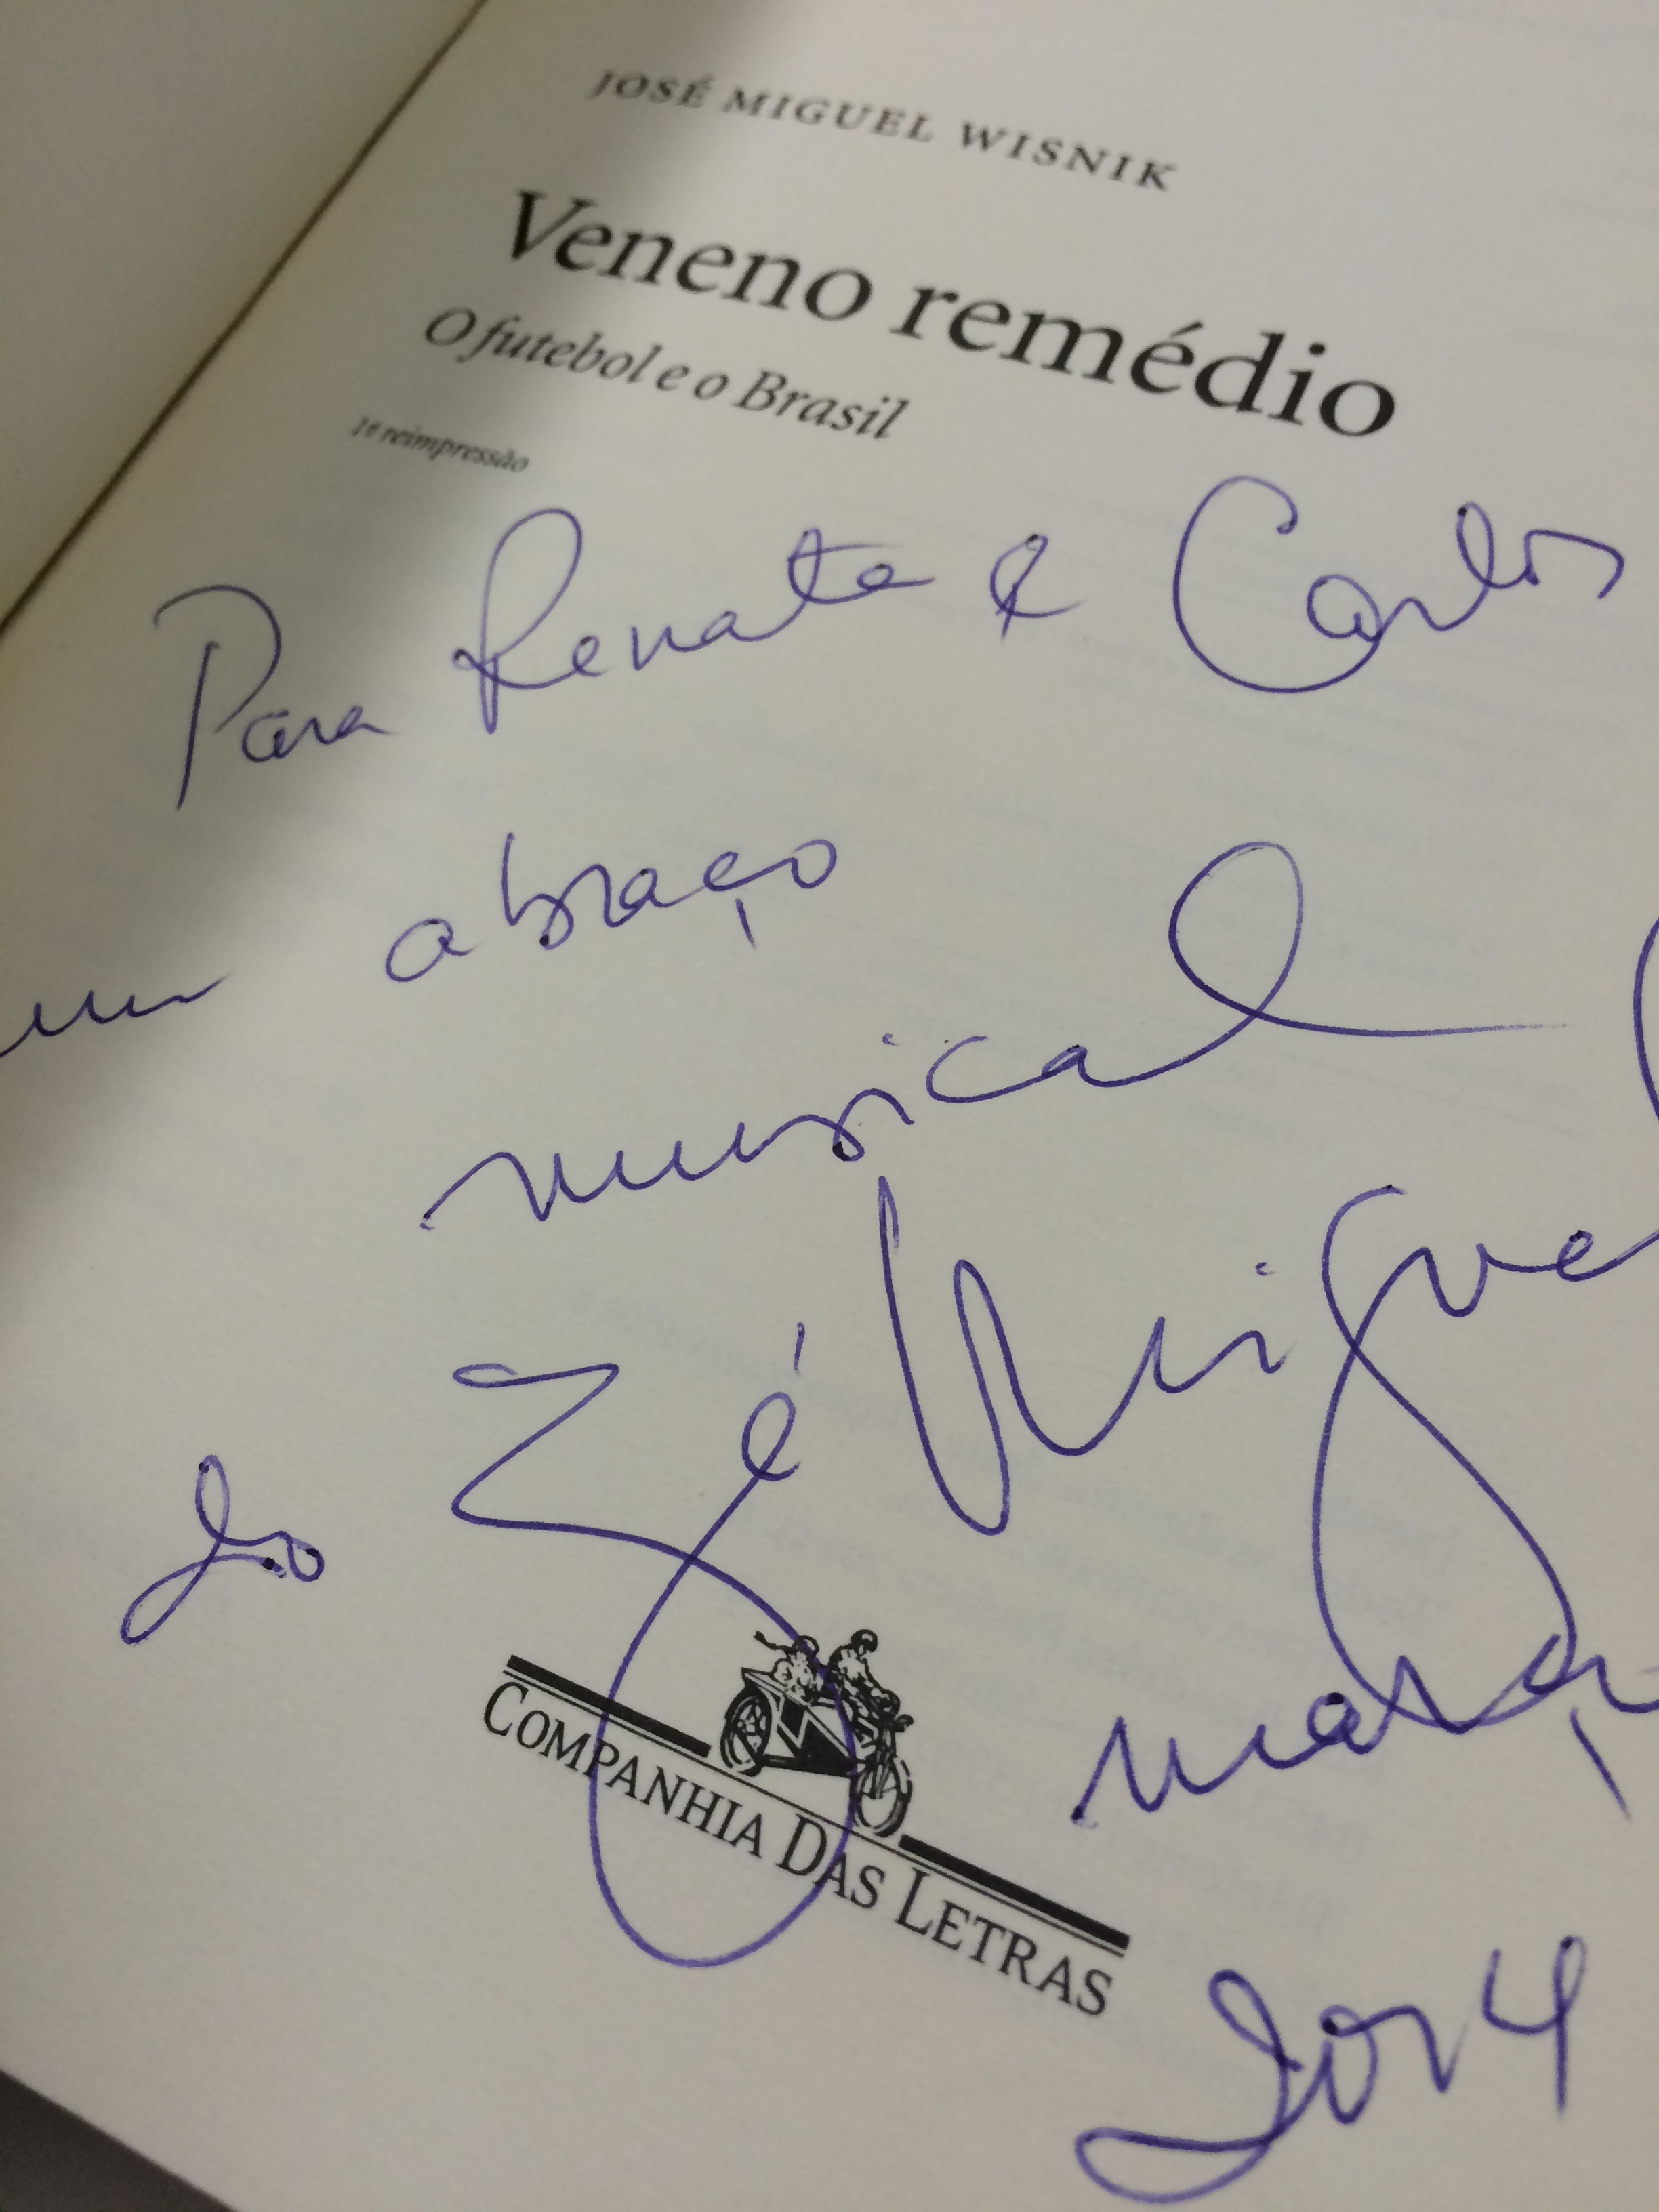 JOSÉ MIGUEL WISNIK
Veneno remédio
O futebol e o Brasil
1ª reimpressão
Para Renata & Carlos
um abraço
musical
do Zé Miguel
março
2014
COMPANHIA DAS LETRAS